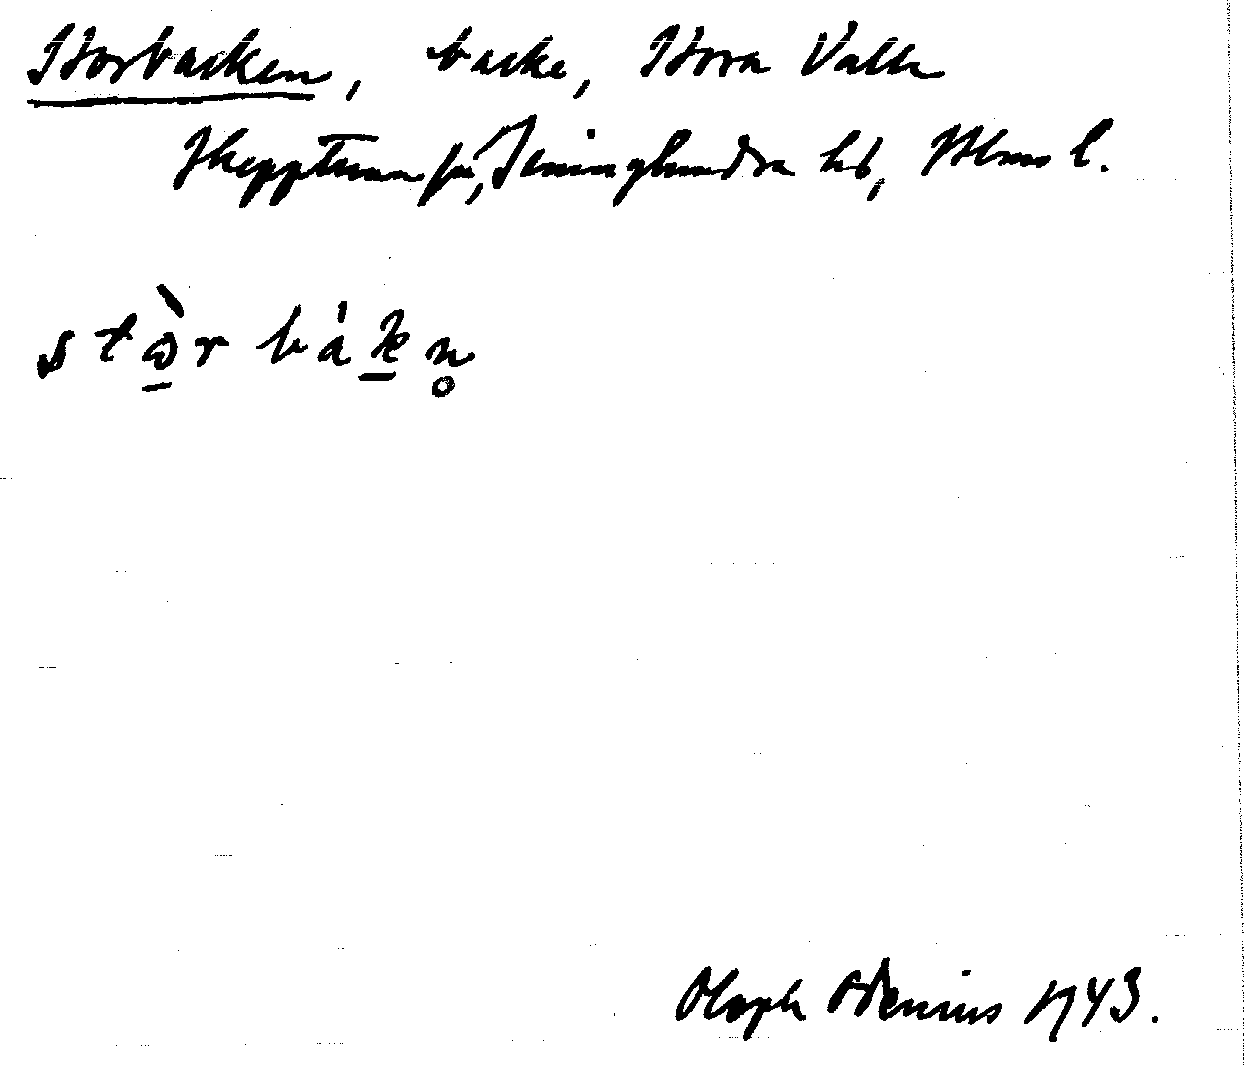 Storbacken, backe, Stora Valla
Skepptuna sn, Seminghundra hd, Sthms l.
stɷ̠̀r bák̠n̥
Oloph Odenius 1943.